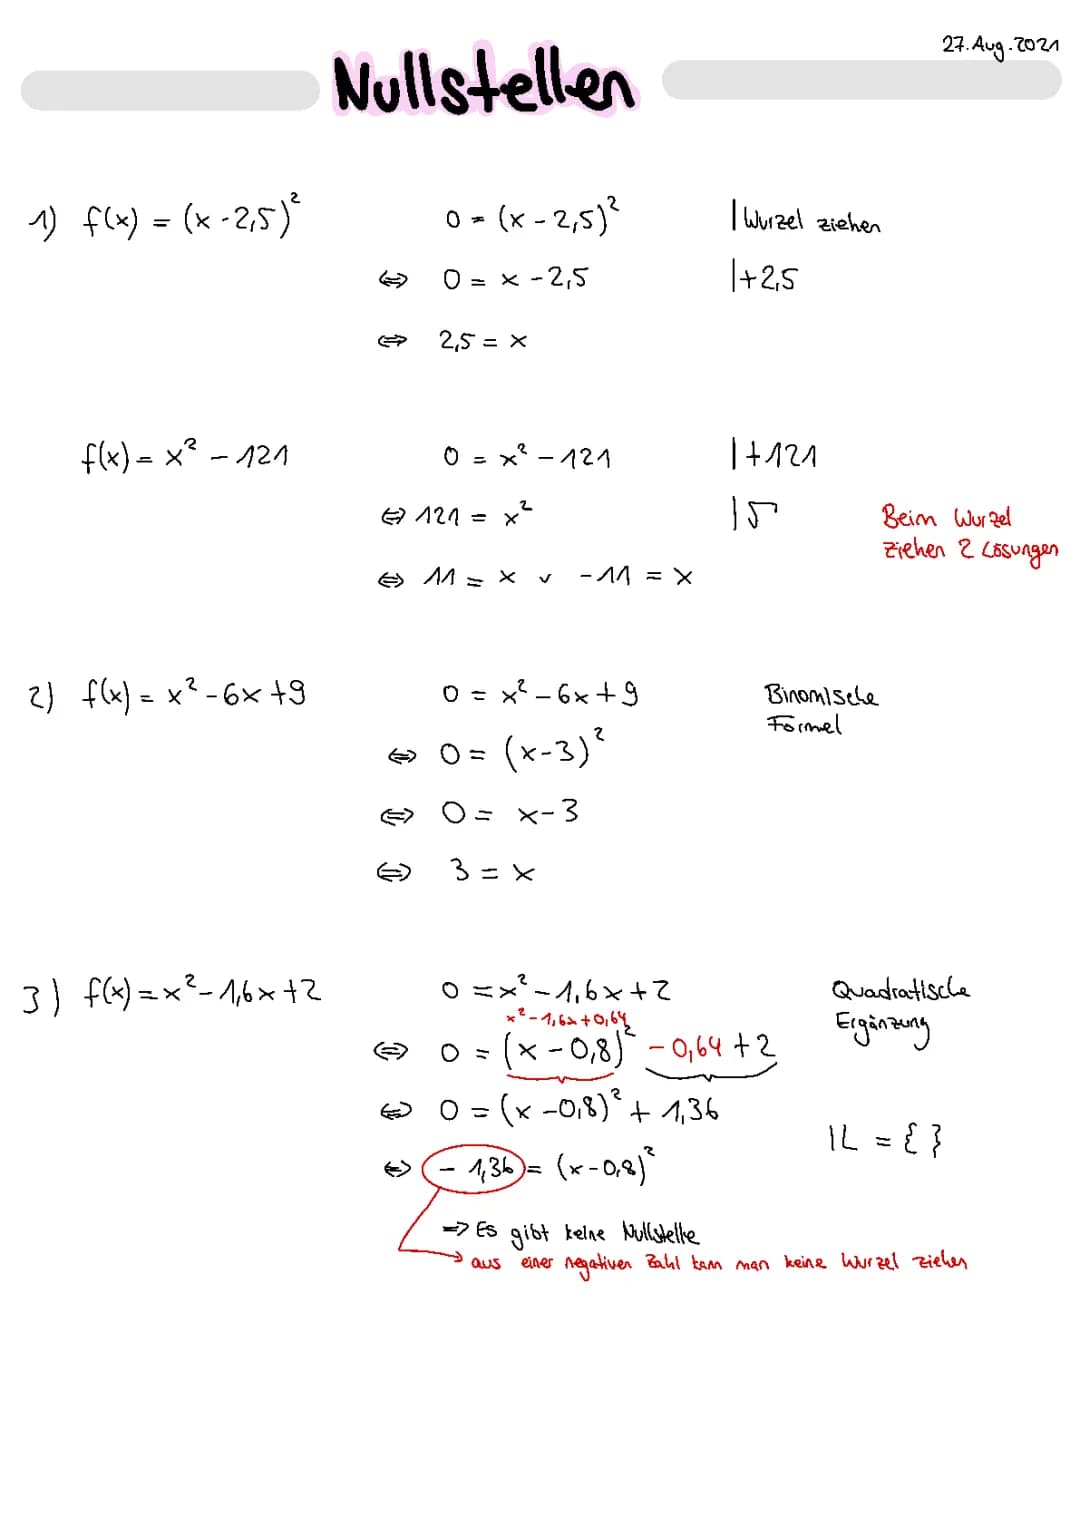 27. Aug. 2021
Nullstellen
1) f(x) = (x - 2,5)² 0 = (x - 2,5)² | Wurzel ziehen
⇔ 0 = x - 2,5 |+2,5
⇔ 2,5 = x
f(x) = x² - 121 0 = x² - 121 |+121
⇔ 121 = x² |√ Beim Wurzel
ziehen 2 Lösungen
⇔ 11 = x ∨ -11 = x
2) f(x) = x² - 6x + 9 0 = x² - 6x + 9 Binomische
Formel
⇔ 0 = (x-3)²
⇔ 0 = x-3
⇔ 3 = x
3) f(x) = x² - 1,6x + 2 0 = x² - 1,6x + 2 Quadratische
x² - 1,6x + 0,64 Ergänzung
⇔ 0 = (x - 0,8)² - 0,64 + 2
⇔ 0 = (x - 0,8)² + 1,36
IL = { }
⇔ - 1,36 = (x - 0,8)²
=> Es gibt keine Nullstelle
→ aus einer negativen Zahl kann man keine Wurzel ziehen